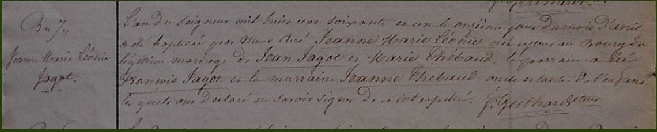 Jeanne Marie Léonie
Jagot.
L'an du Seigneur mil huit cent soixante et un le onzième jour du mois d'avril
a été baptisée par nous Jeanne Marie Léonie née au bourg du
légitime mariage de Jean Jagot et Marie Thébaud, le parrain a été
François Jagot et la marraine Jeanne Thébaud oncle et tante de l'enfant
les quels ont déclaré ne savoir signer de ce interpellés.